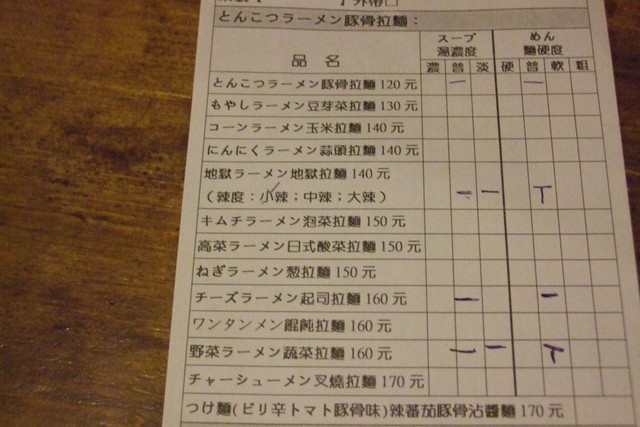 外帶□
とんこつラーメン豚骨拉麵：
スープ めん
湯濃度 麵硬度
品名 濃 普 淡 硬 普 軟 粗
とんこつラーメン豚骨拉麵 120 元 一 一
もやしラーメン豆芽菜拉麵 130 元
コーンラーメン玉米拉麵 140 元
にんにくラーメン蒜頭拉麵 140 元
地獄ラーメン地獄拉麵 140 元
（辣度：小辣；中辣；大辣） 一 一 丅
キムチラーメン泡菜拉麵 150 元
高菜ラーメン日式酸菜拉麵 150 元
ねぎラーメン葱拉麵 150 元
チーズラーメン起司拉麵 160 元 一 一
ワンタンメン餛飩拉麵 160 元
野菜ラーメン蔬菜拉麵 160 元 一 一 丅
チャーシューメン叉燒拉麵 170 元
つけ麵(ピリ辛トマト豚骨味)辣蕃茄豚骨沾醬麵 170 元